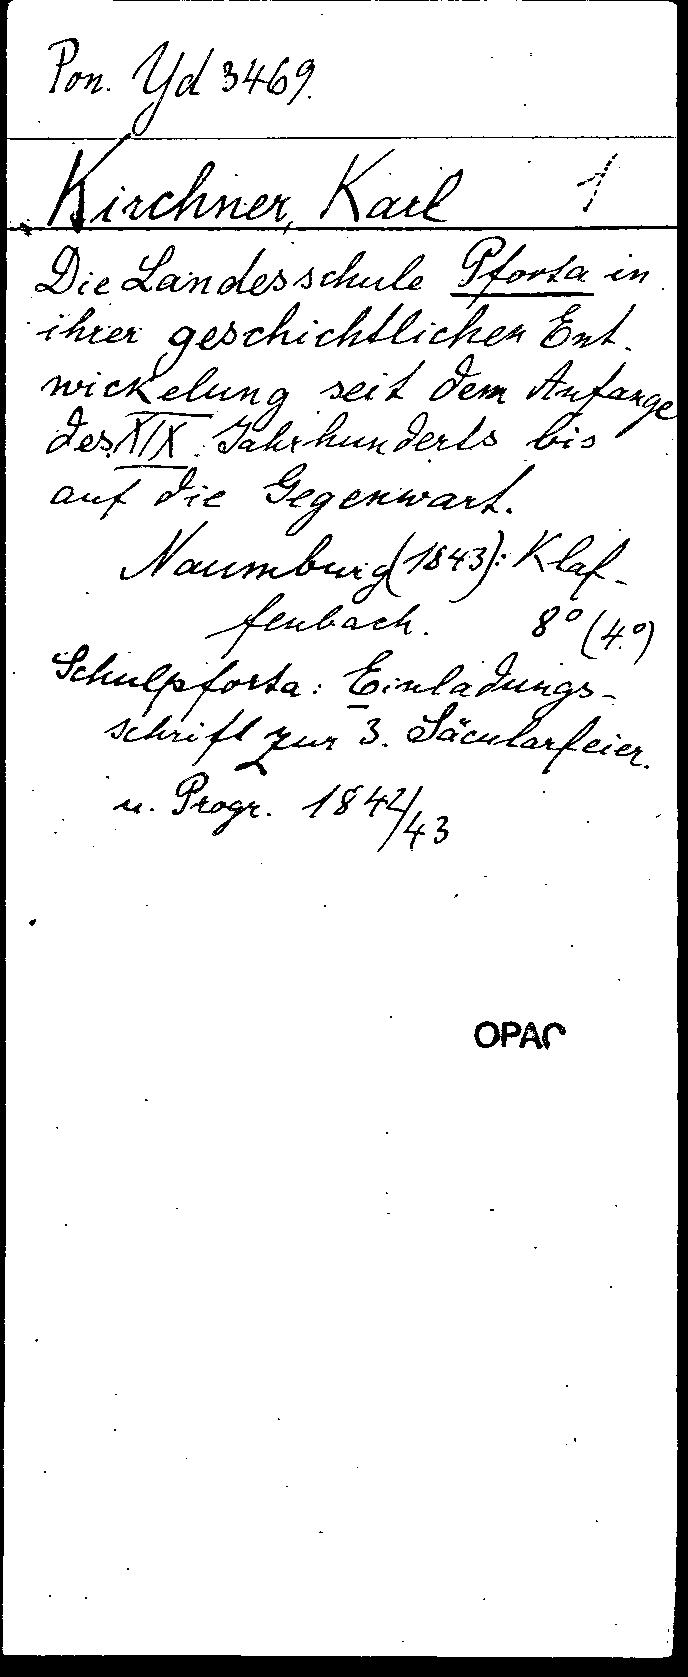 Pon. Yd 3469.
Kirchner, Karl 1
Die Landesschule Pforta in
ihrer geschichtlichen Ent-
wickelung seit dem Anfange
des XIX. Jahrhunderts bis
auf die Gegenwart.
Naumburg (1843): Klaf-
fenbach. 8° (4°)
Schulpforta: Einladungs-
schrift zur 3. Säcularfeier.
u. Progr. 1842/43
OPAC